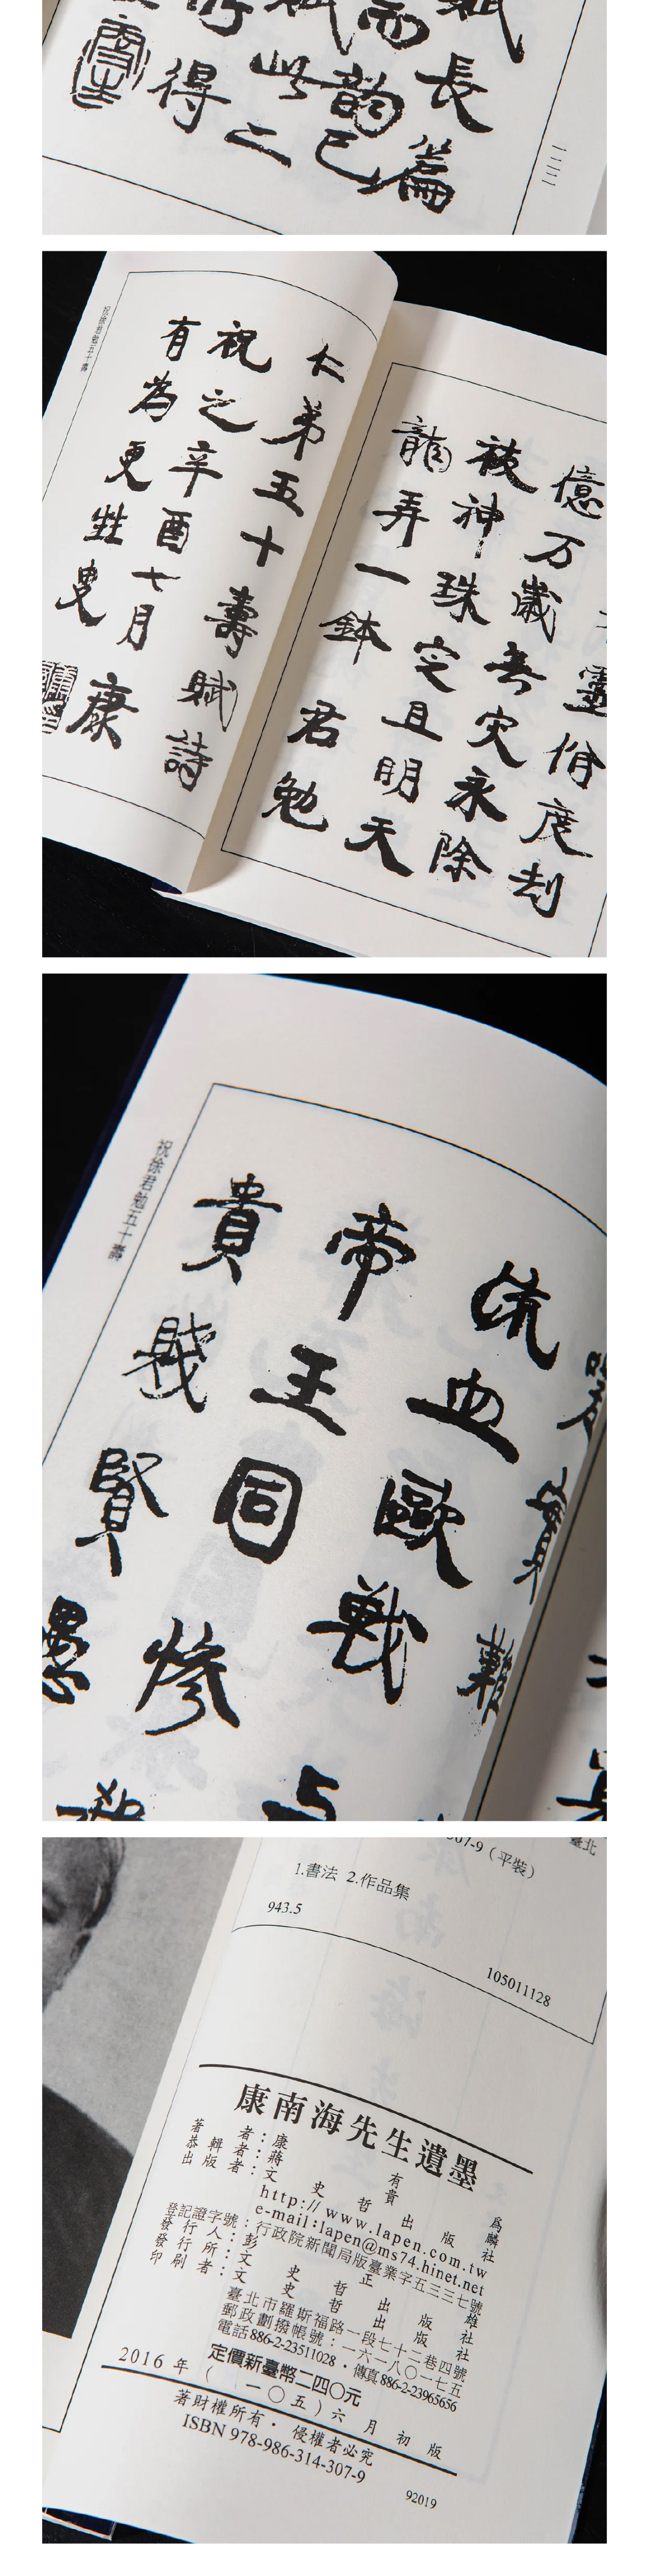 長篇
韵已
此二
得
一二二
億万歲無灾永除
被神珠完且明天
龍弄一鉢君勉
仁弟五十壽賦詩
祝之辛酉七月康
有為更甡叟
祝徐君勉五十壽
流血歐戰
帝王同慘
貴賤賢愚
祝徐君勉五十壽
臺北
307-9（平裝）
1.書法 2.作品集
943.5
105011128
康南海先生遺墨
著者：康有為
恭輯者：蔣貴麟
出版者：文史哲出版社
http://www.lapen.com.tw
e-mail:lapen@ms74.hinet.net
登記證字號：行政院新聞局版臺業字五三三七號
發行人：彭正雄
發行所：文史哲出版社
印刷者：文史哲出版社
臺北市羅斯福路一段七十二巷四號
郵政劃撥帳號：一六一八〇一七五
電話886-2-23511028・傳真886-2-23965656
定價新臺幣二四〇元
2016年（一〇五）六月初版
著財權所有・侵權者必究
ISBN 978-986-314-307-9
92019